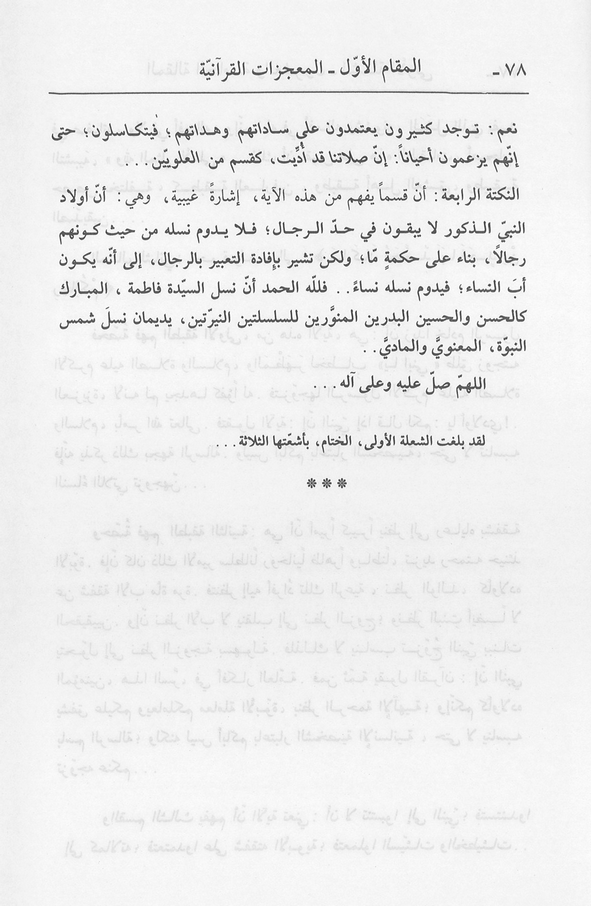 ٧٨ - المقام الأوّل - المعجزات القرآنيّة
نعم: توجد كثيرون يعتمدون على ساداتهم وهداتهم؛ فيتكاسلون؛ حتى
إنّهم يزعمون أحياناً: إنّ صلاتنا قد أُدِّيت، كقسم من العلويّين...
النكتة الرابعة: أنّ قسماً يفهم من هذه الآية، إشارةً غيبية، وهي: أنّ أولاد
النبيّ الذكور لا يبقون في حدّ الرجال؛ فلا يدوم نسله من حيث كونهم
رجالًا، بناء على حكمةٍ مّا؛ ولكن تشير بإفادة التعبير بالرجال، إلى أنّه يكون
أبَ النساء؛ فيدوم نسله نساءً.. فللّه الحمد أنّ نسل السيّدة فاطمة، المبارك
كالحسن والحسين البدرين المنوَّرين للسلسلتين النيرّتين، يديمان نسلَ شمس
النبوّة، المعنويَّ والماديَّ..
اللهمّ صلّ عليه وعلى آله...
لقد بلغت الشعلة الأولى، الختام، بأشعّتها الثلاثة...
***